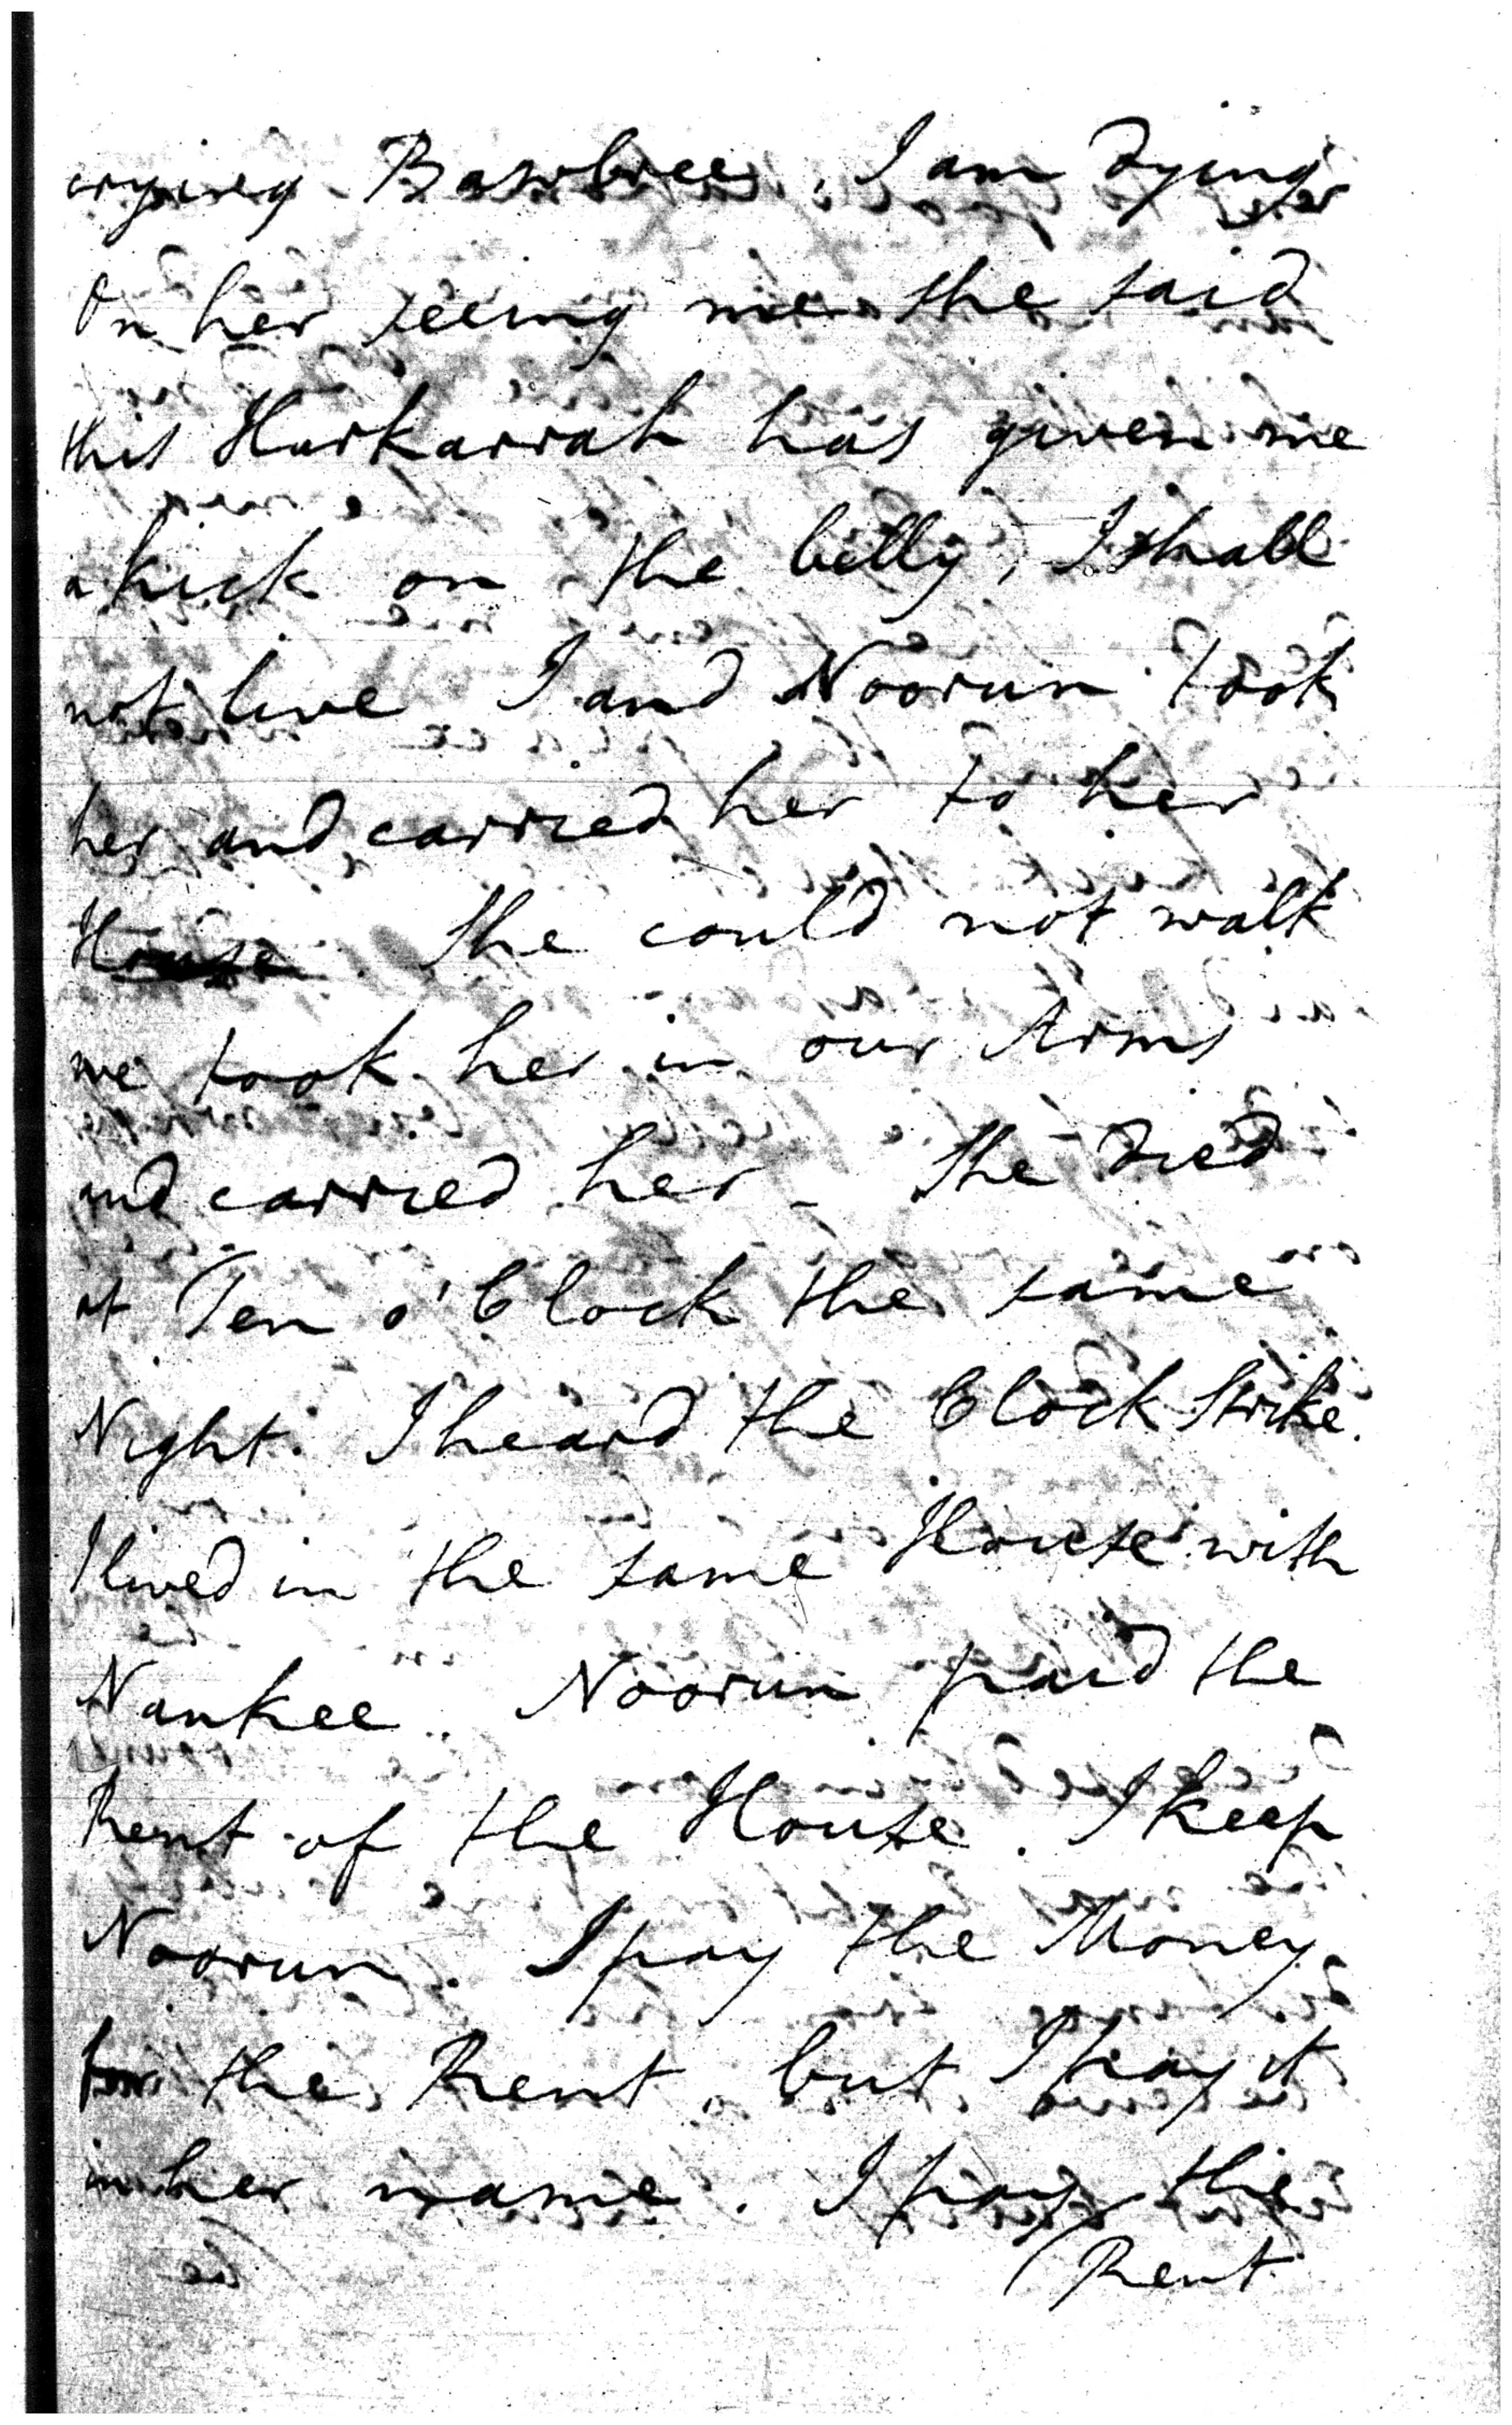 crying Bawbree, I am dying
On her seeing me she said
this Hurkarrah has given me
a kick on the belly, I shall
not live I and Noorun took
her and carried her to her
House. She could not walk
we took her in our Arms
and carried her - She died
at Ten o'Clock the same
Night. I heard the Clock Strike.
I lived in the same House with
Nankee. Noorun paid the
Rent of the House. I keep
Noorun. I pay the Money
for the Rent, but I pay it
in her name. I pay the
Rent